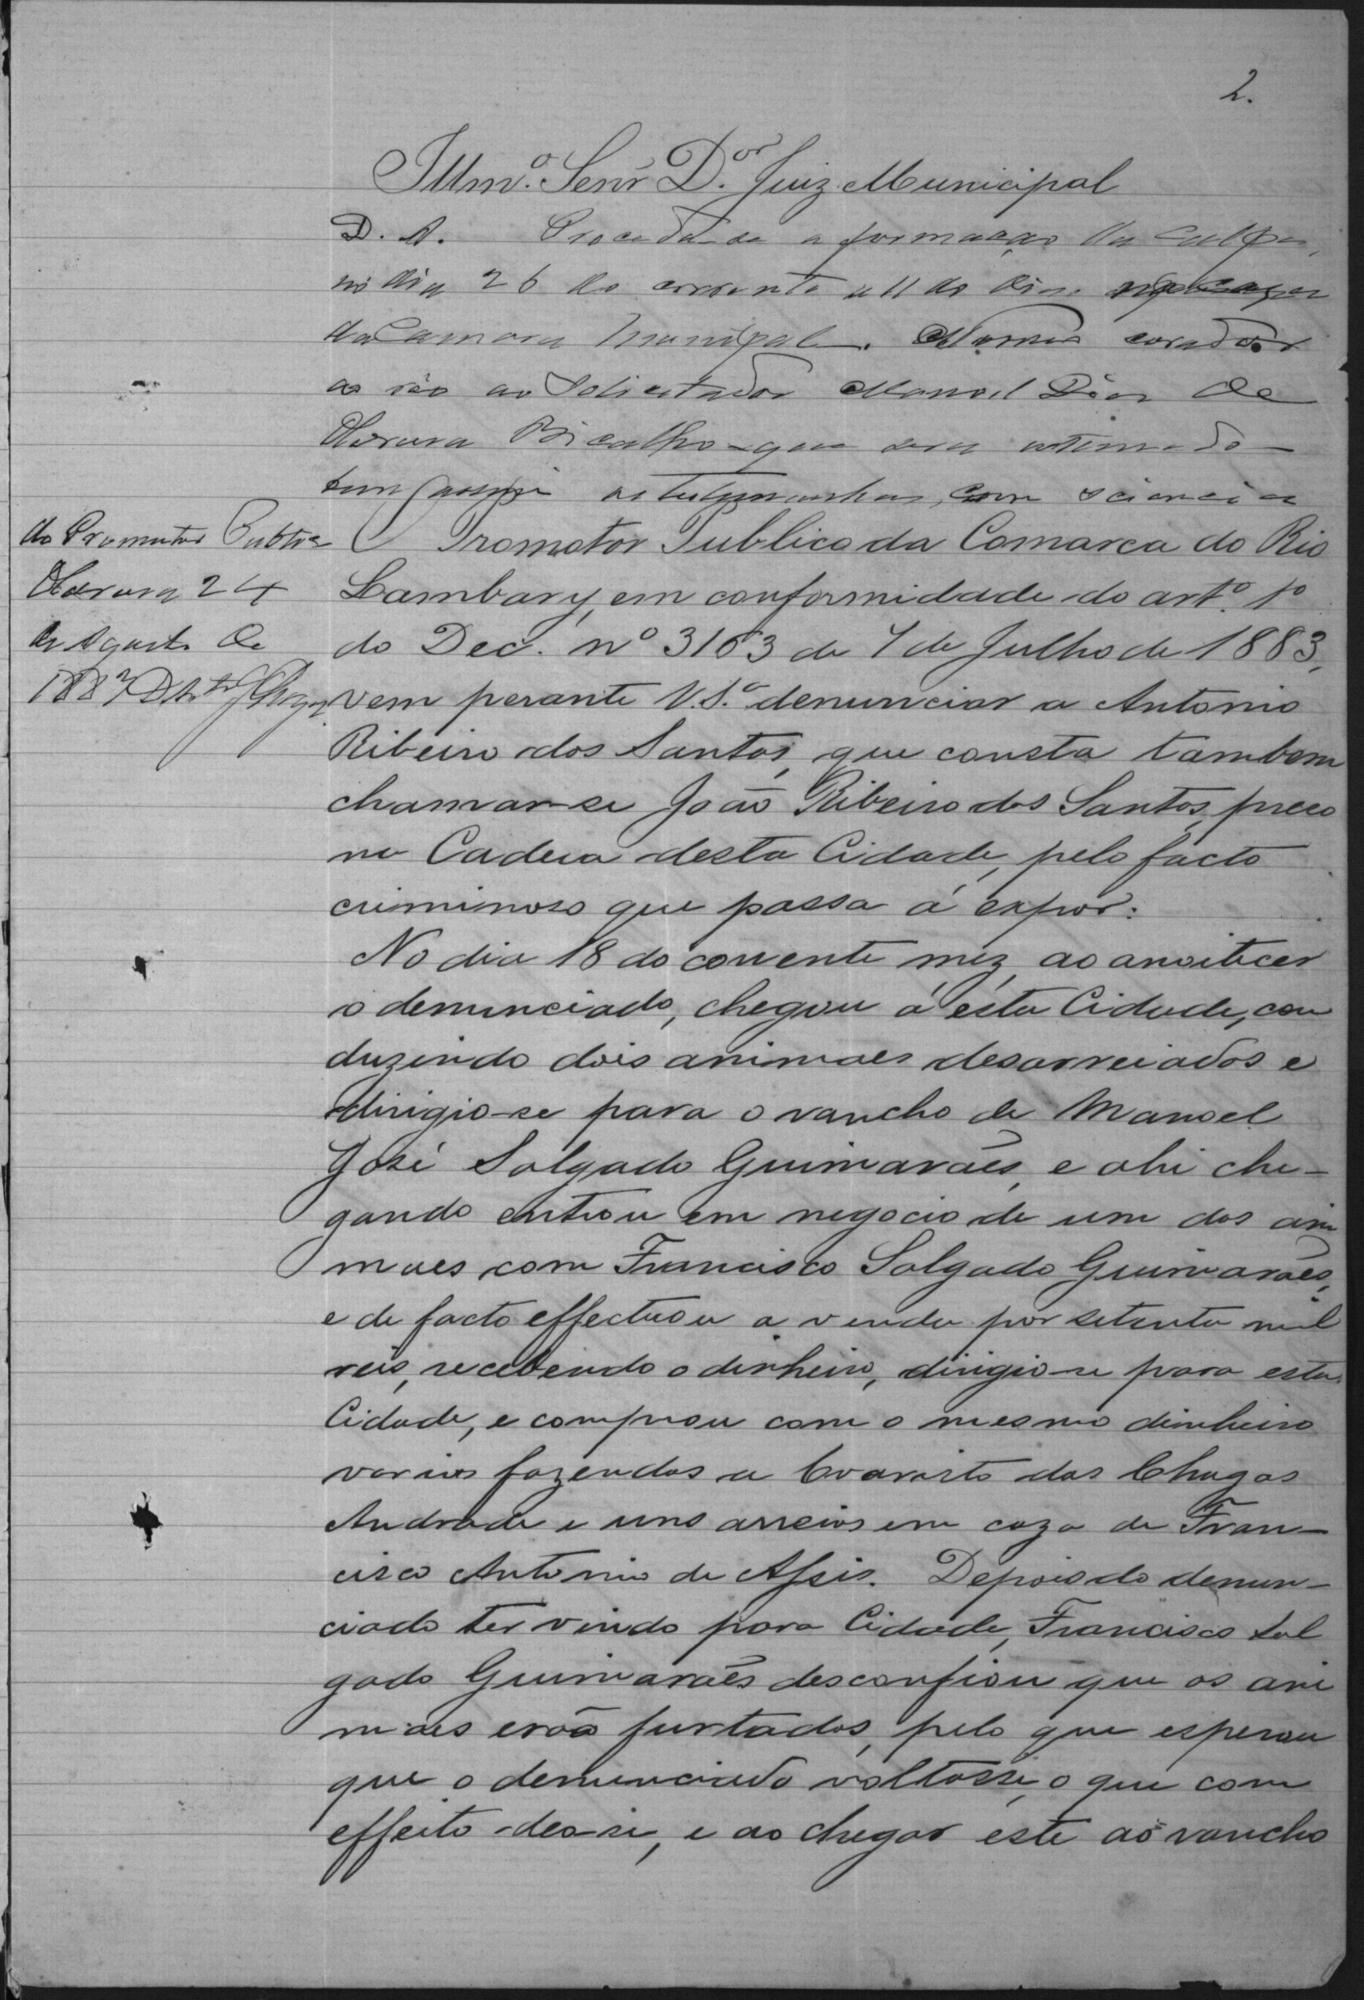 2.
Illmo. Senr. Dor. Juiz Municipal
D. A. Proceda-se a formação da culpa,
no dia 26 do corrente as 11 do dia
da Camara Municipal. Nomeio curador
ao réo ao Solicitador Manoel Dias de
Bicalho que sera intimado
as testemunhas, com sciencia
do Promotor Publico
24
de Agosto de
1887
O Promotor Publico da Comarca do Rio
Lambary, em conformidade do artº. 1º
do Dec. nº 3163 de 7 de Julho de 1883,
vem perante V.Sª. denunciar a Antonio
Ribeiro dos Santos, que consta tambem
chamar-se João Ribeiro dos Santos, prezo
na Cadeia desta Cidade, pelo facto
criminoso que passa á expor:
No dia 18 do corrente mez, ao anoitecer
o denunciado, chegou á esta Cidade, con
duzindo dois animaes desarreiados e
dirigio-se para o rancho de Manoel
José Salgado Guimarães, e ahi che-
gando entrou em negocio de um dos ani
maes com Francisco Salgado Guimarães,
e de facto effectuou a venda por setenta mil
reis, recebendo o dinheiro, dirigio-se para esta
Cidade, e comprou com o mesmo dinheiro
varias fazendas a Evaristo das Chagas
Andrade e uns arreios em caza de Fran-
cisco Antonio de Assis. Depois do denun-
ciado ter vindo para Cidade, Francisco Sal
gado Guimarães desconfiou que os ani
maes erão furtados, pelo que esperou
que o denunciado voltasse, o que com
effeito deo-se, e ao chegar este ao rancho